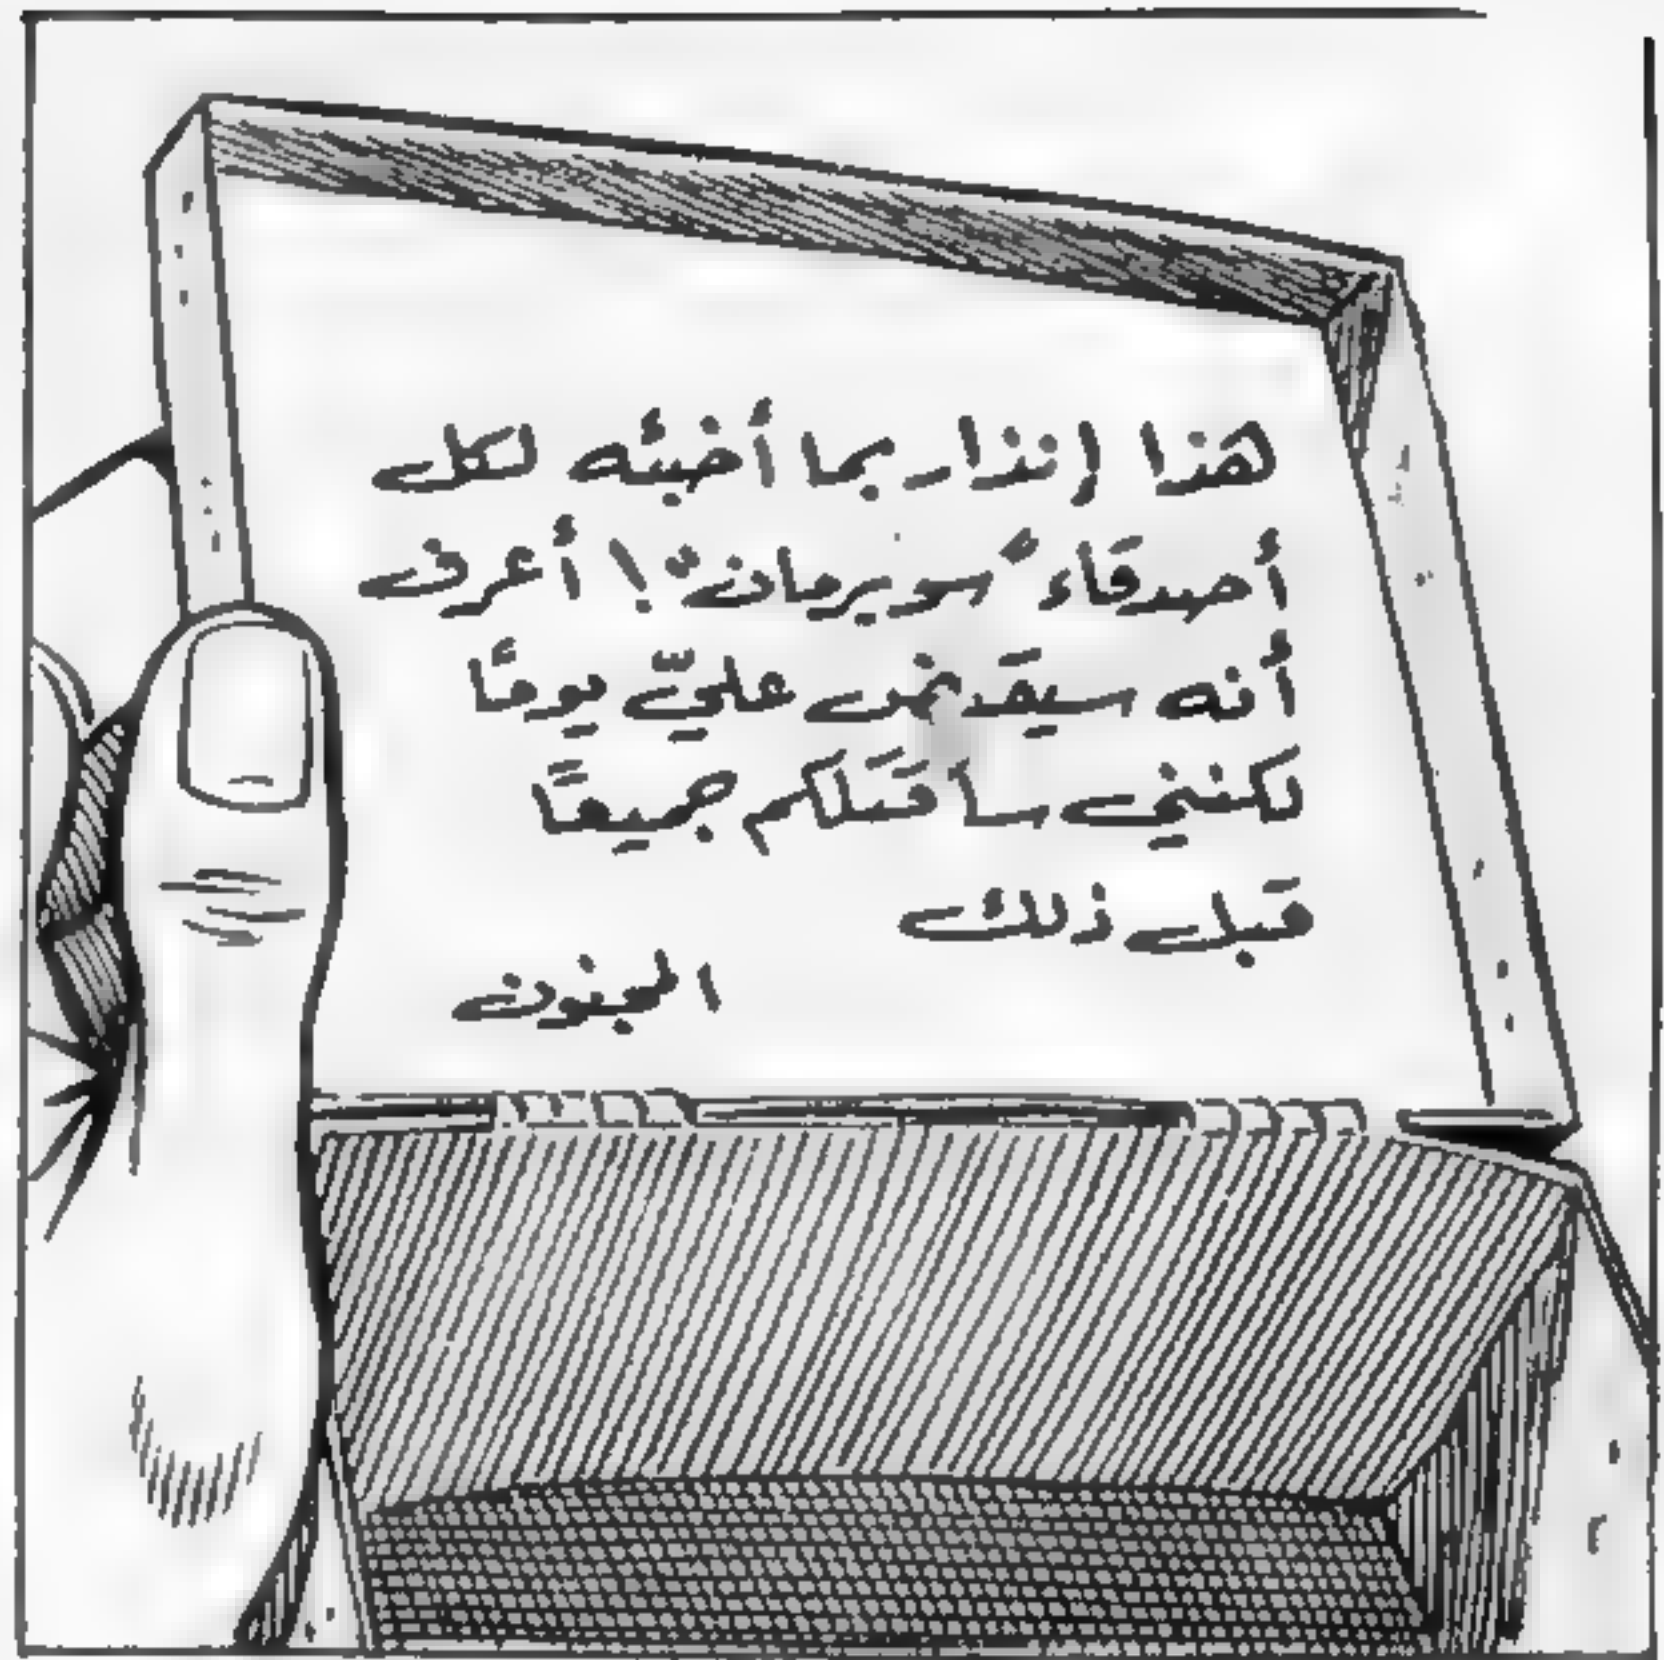 هذا إنذار بما أخبئه لكل
أصدقاء "سوبرمان"! أعرف
أنه سيقضي عليّ يومًا
لكنني سأقتلكم جميعًا
قبل ذلك
المجنون